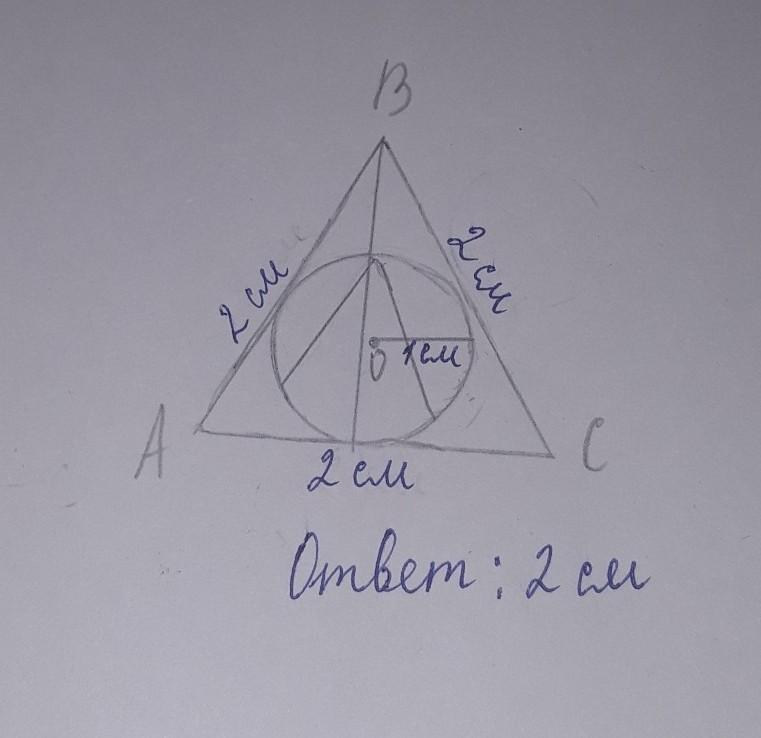 B
2 см
2 см
O
1 см
A
C
2 см
Ответ: 2 см